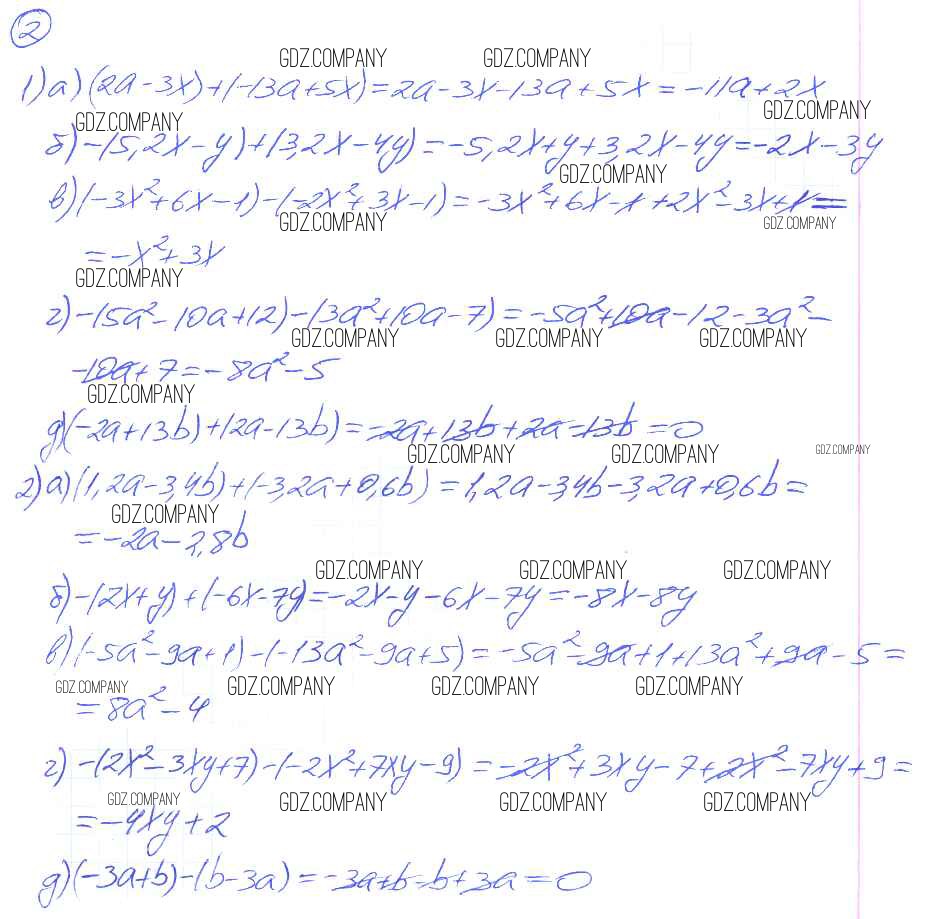 2
GDZ.COMPANY GDZ.COMPANY
1) а) (2a-3x)+(-13a+5x)=2a-3x-13a+5x=-11a+2x
GDZ.COMPANY GDZ.COMPANY
б) -(5,2x-y)+(3,2x-4y)=-5,2x+y+3,2x-4y=-2x-3y
GDZ.COMPANY
в) (-3x²+6x-1)-(-2x²+3x-1)=-3x²+6x-1+2x²-3x+1=
GDZ.COMPANY GDZ.COMPANY
=-x²+3x
GDZ.COMPANY
г) -(5a²-10a+12)-(3a²+10a-7)=-5a²+10a-12-3a²-
GDZ.COMPANY GDZ.COMPANY GDZ.COMPANY
-10a+7=-8a²-5
GDZ.COMPANY
д) (-2a+13b)+(2a-13b)=-2a+13b+2a-13b=0
GDZ.COMPANY GDZ.COMPANY GDZ.COMPANY
2) а) (1,2a-3,4b)+(-3,2a+0,6b)=1,2a-3,4b-3,2a+0,6b=
GDZ.COMPANY
=-2a-2,8b
GDZ.COMPANY GDZ.COMPANY GDZ.COMPANY
б) -(2x+y)+(-6x-7y)=-2x-y-6x-7y=-8x-8y
в) (-5a²-9a+1)-(-13a²-9a+5)=-5a²-9a+1+13a²+9a-5=
GDZ.COMPANY GDZ.COMPANY GDZ.COMPANY GDZ.COMPANY
=8a²-4
г) -(2x²-3xy+7)-(-2x²+7xy-9)=-2x²+3xy-7+2x²-7xy+9=
GDZ.COMPANY GDZ.COMPANY GDZ.COMPANY GDZ.COMPANY
=-4xy+2
д) (-3a+b)-(b-3a)=-3a+b-b+3a=0